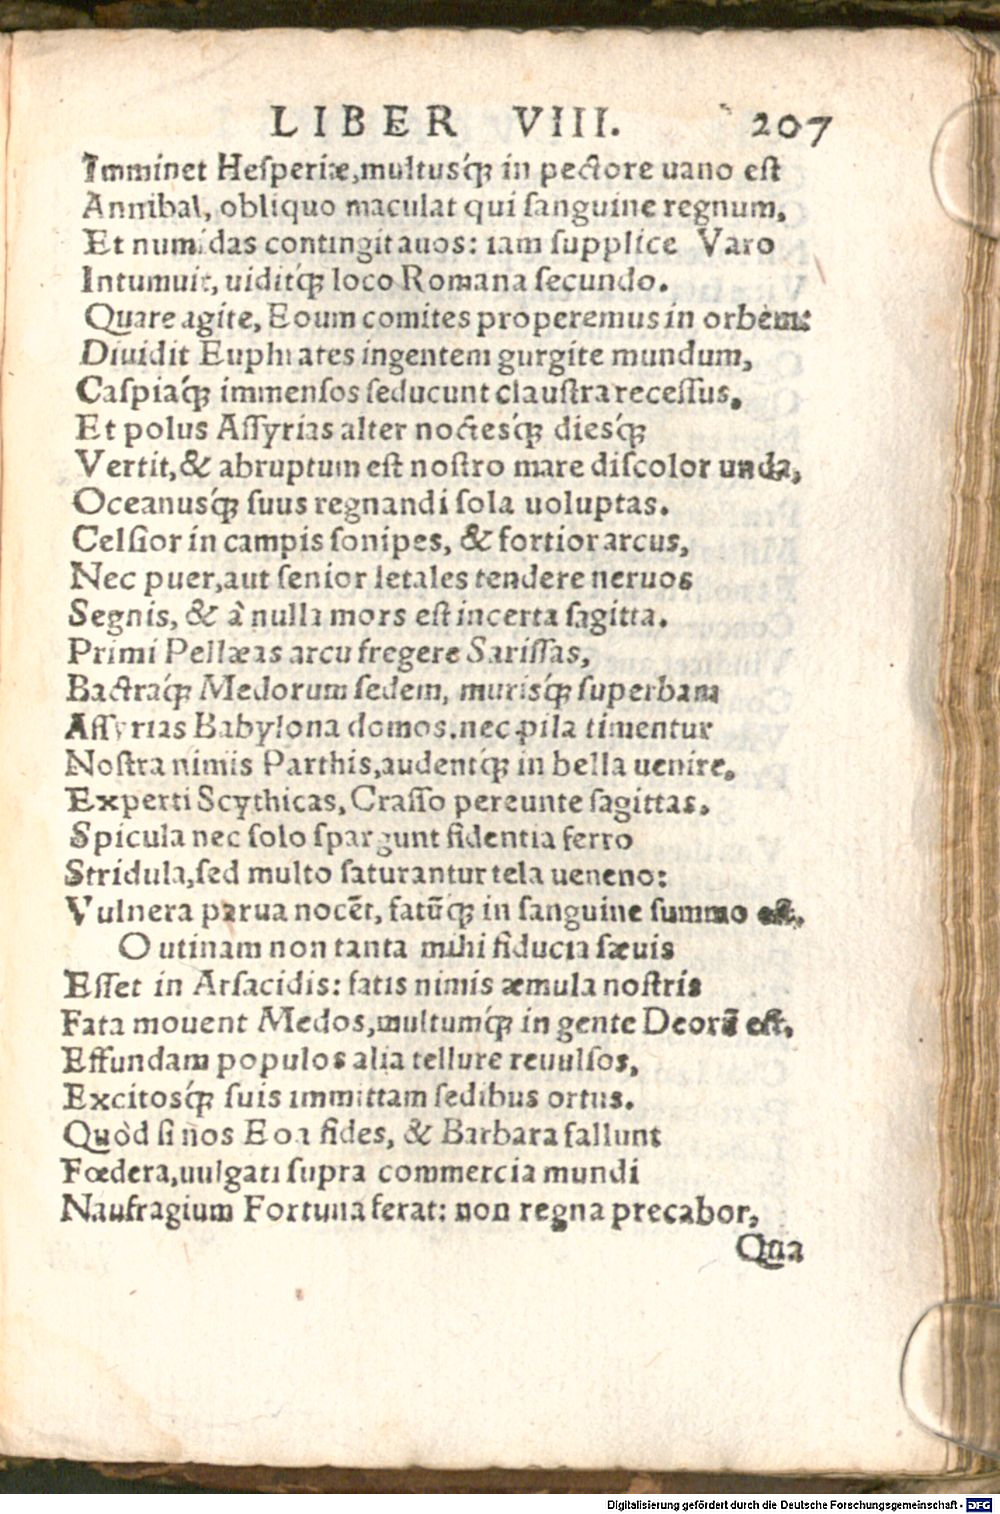 LIBER VIII. 207
Imminet Hesperiæ,multusq́; in pectore uano est
Annibal, obliquo maculat qui sanguine regnum,
Et numidas contingit auos: iam supplice Varo
Intumuit, uiditq́; loco Romana secundo.
Quare agite, Eoum comites properemus in orbem:
Diuidit Euphrates ingentem gurgite mundum,
Caspiaq́; immensos seducunt claustra recessus.
Et polus Assyrias alter noctesq́; diesq́;
Vertit,& abruptum est nostro mare discolor unda,
Oceanusq́; suus regnandi sola uoluptas.
Celsior in campis sonipes, & fortior arcus,
Nec puer,aut senior letales tendere neruos
Segnis, & à nulla mors est incerta sagitta.
Primi Pellæas arcu fregere Sarissas,
Bactraq́; Medorum sedem, murisq́; superbam
Assyrias Babylona domos.nec pila timentur
Nostra nimis Parthis,audentq́; in bella uenire,
Experti Scythicas, Crasso pereunte sagittas.
Spicula nec solo spargunt fidentia ferro
Stridula,sed multo saturantur tela ueneno:
Vulnera parua nocẽt, fatũq́; in sanguine summo est.
O utinam non tanta mihi fiducia sæuis
Esset in Arsacidis: fatis nimis æmula nostris
Fata mouent Medos,multumq́; in gente Deorũ est.
Effundam populos alia tellure reuulsos,
Excitosq́; suis immittam sedibus ortus.
Quòd si nos Eoa fides, & Barbara fallunt
Fœdera,uulgati supra commercia mundi
Naufragium Fortuna ferat: non regna precabor,
Qua
Digitalisierung gefördert durch die Deutsche Forschungsgemeinschaft - DFG